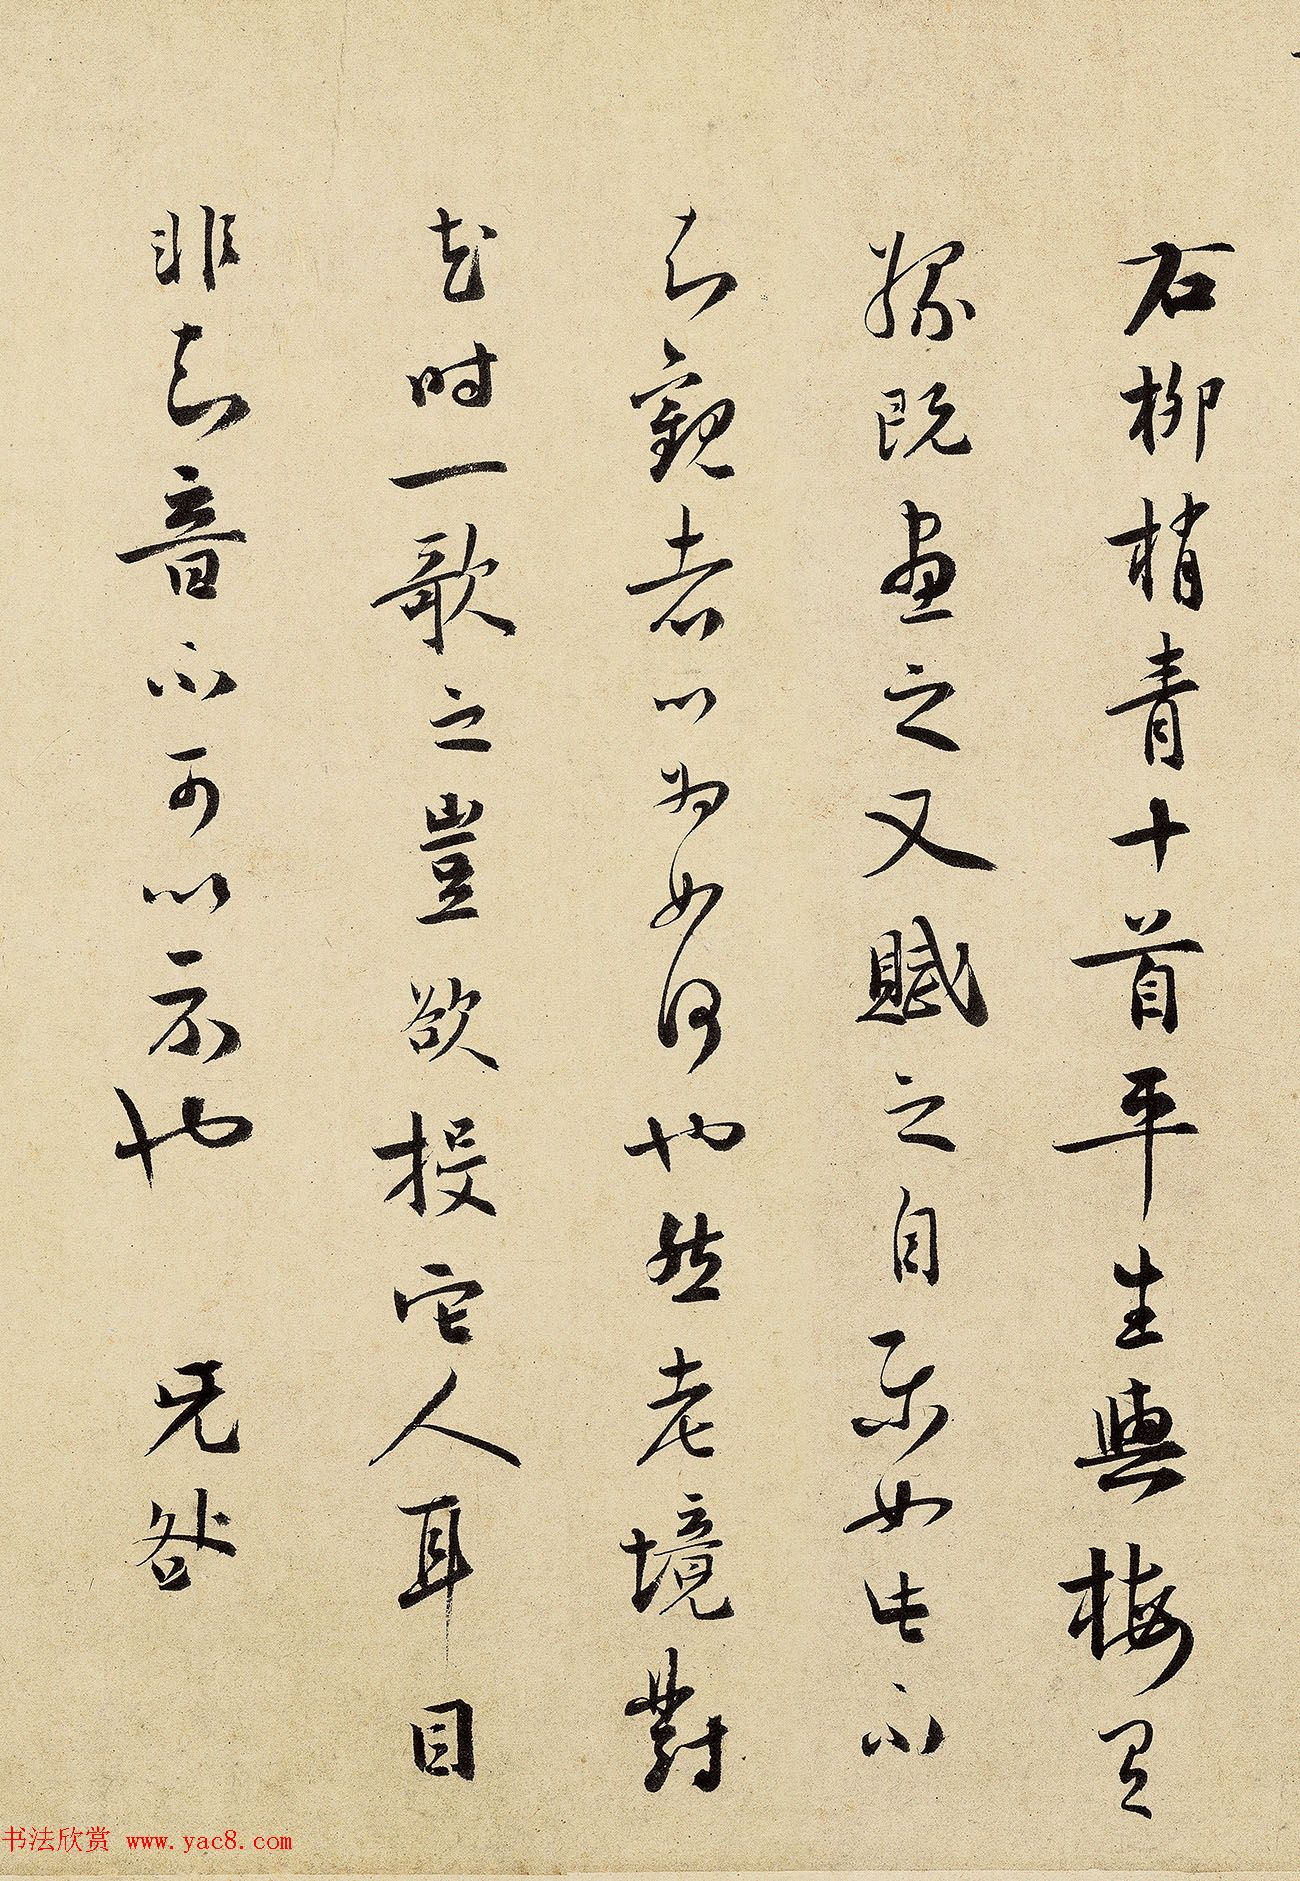 右柳梢青十首平生與梅有
緣既畫之又賦之自樂如此不
知觀者以為如何也然老境對
花時一歌之豈欲授它人耳目
非知音不可以示也 无咎
书法欣赏 www.yac8.com